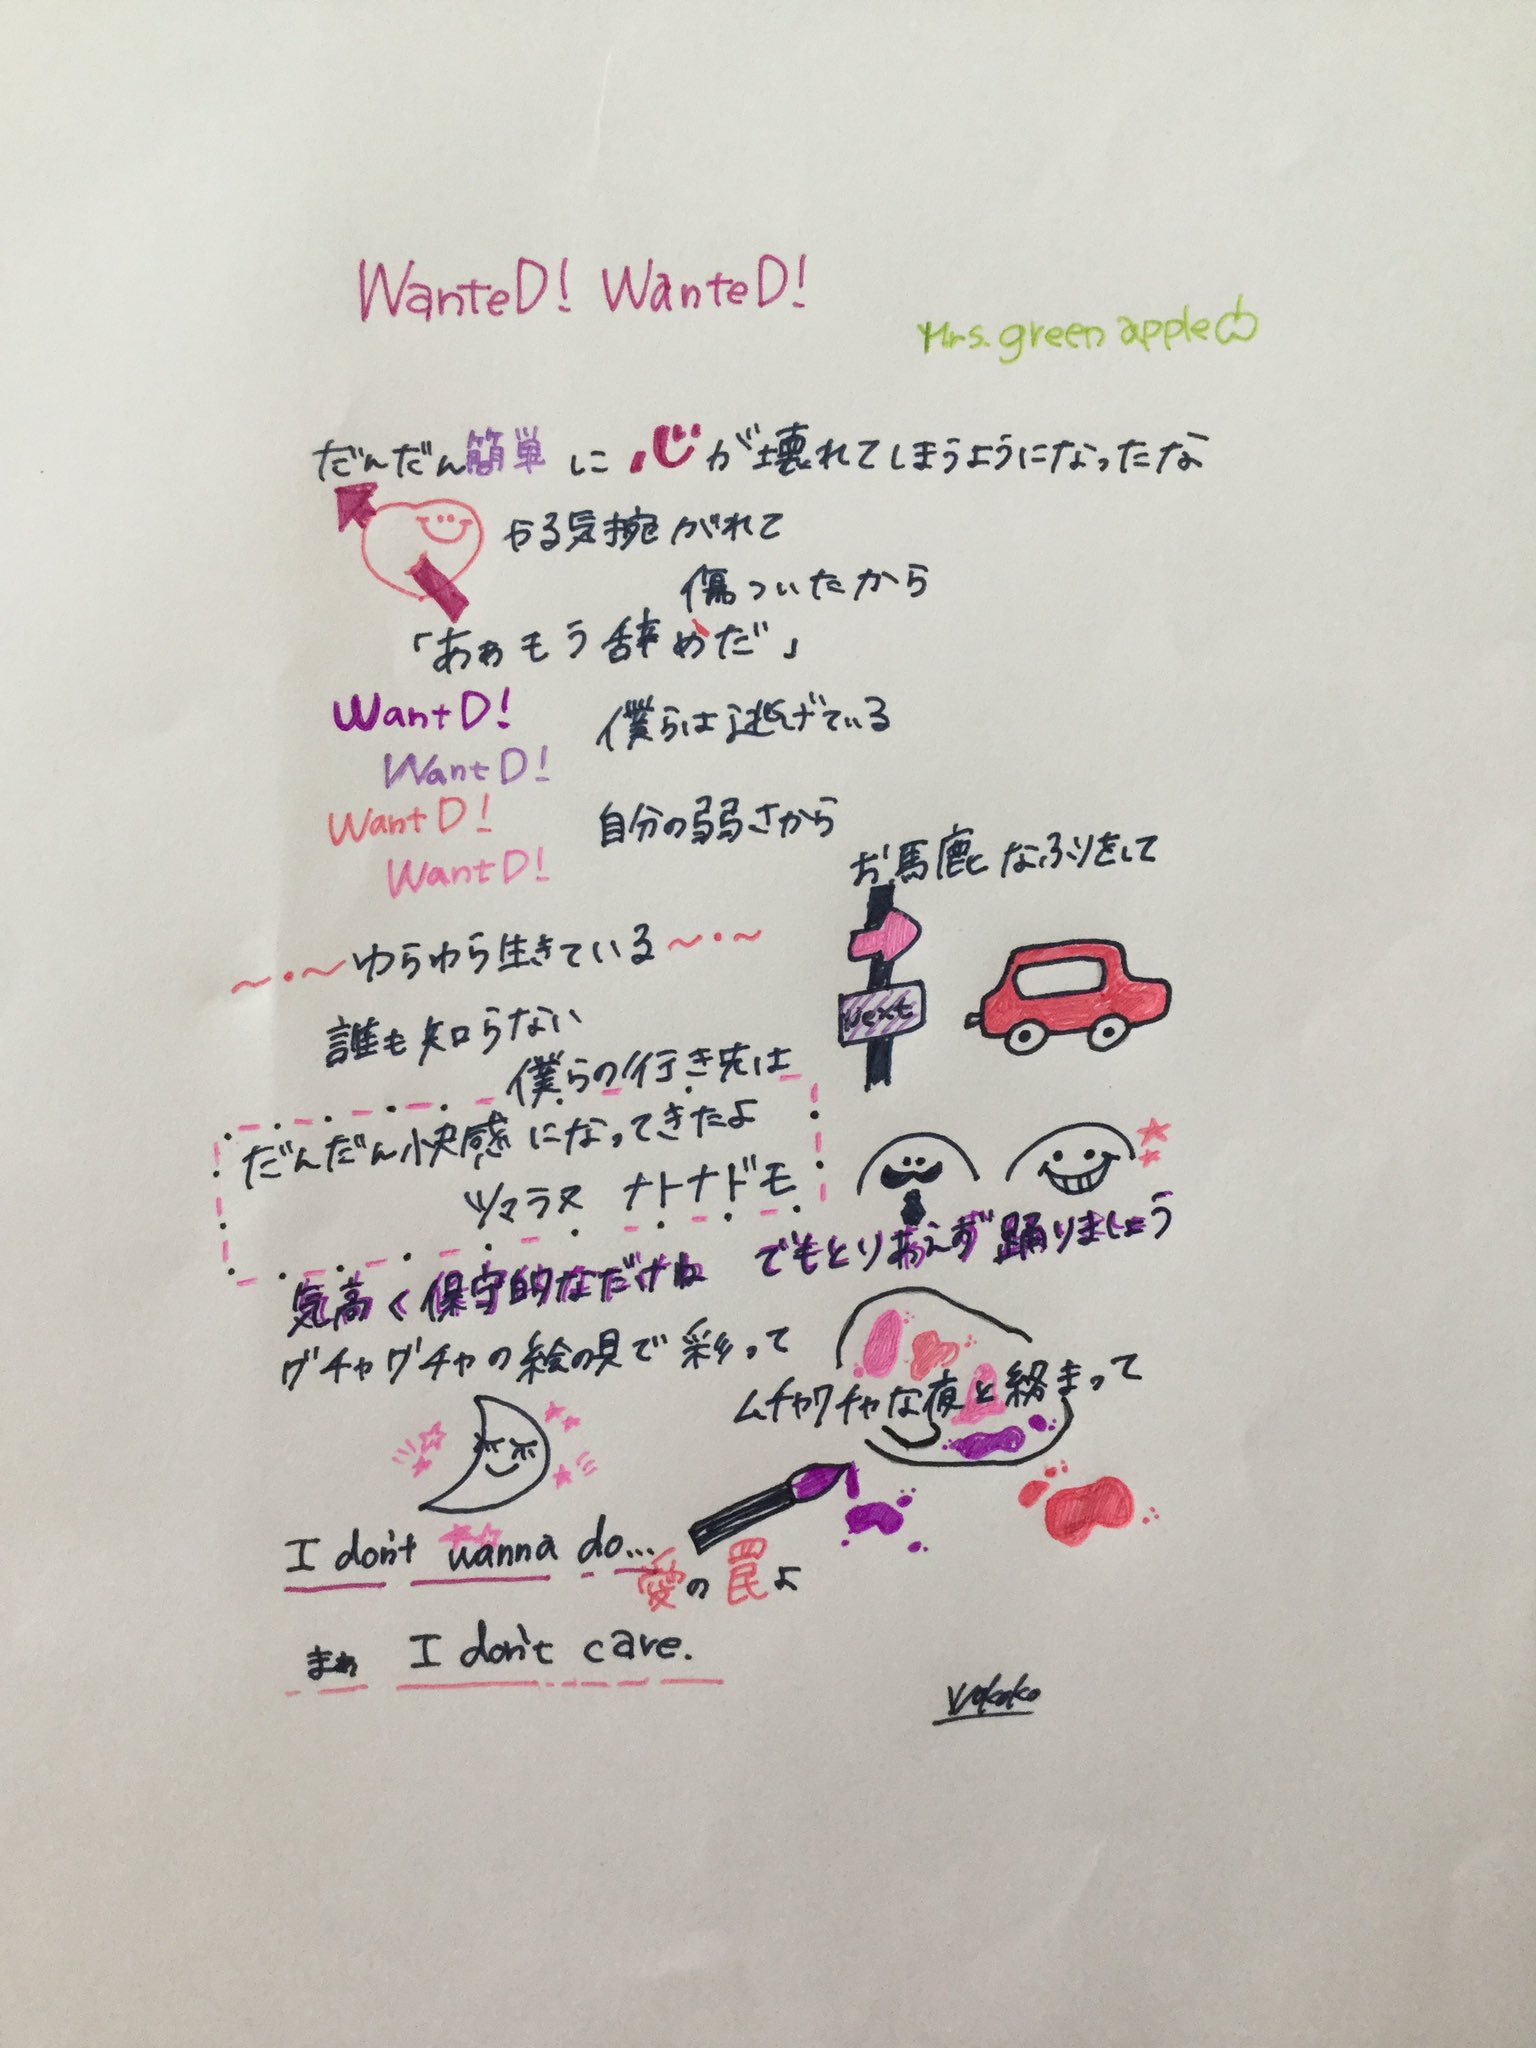 WanteD! WanteD!
Mrs. green apple
だんだん簡単に心が壊れてしまうようになったな
やる気捥がれて
傷ついたから
「あぁもう辞めだ」
WantD! 僕らは逃げている
WantD!
WantD! 自分の弱さから
WantD!
お馬鹿なふりをして
〜・〜ゆらゆら生きている〜・〜
Next
誰も知らない
僕らの行き先は
だんだん快感になってきたよ
ツマラヌ ナトナドモ
気高く保守的なだけね でもとりあえず踊りましょう
グチャグチャの絵の具で彩って
ムチャクチャな夜と絡まって
I don't wanna do...
愛の罠よ
まぁ I don't care.